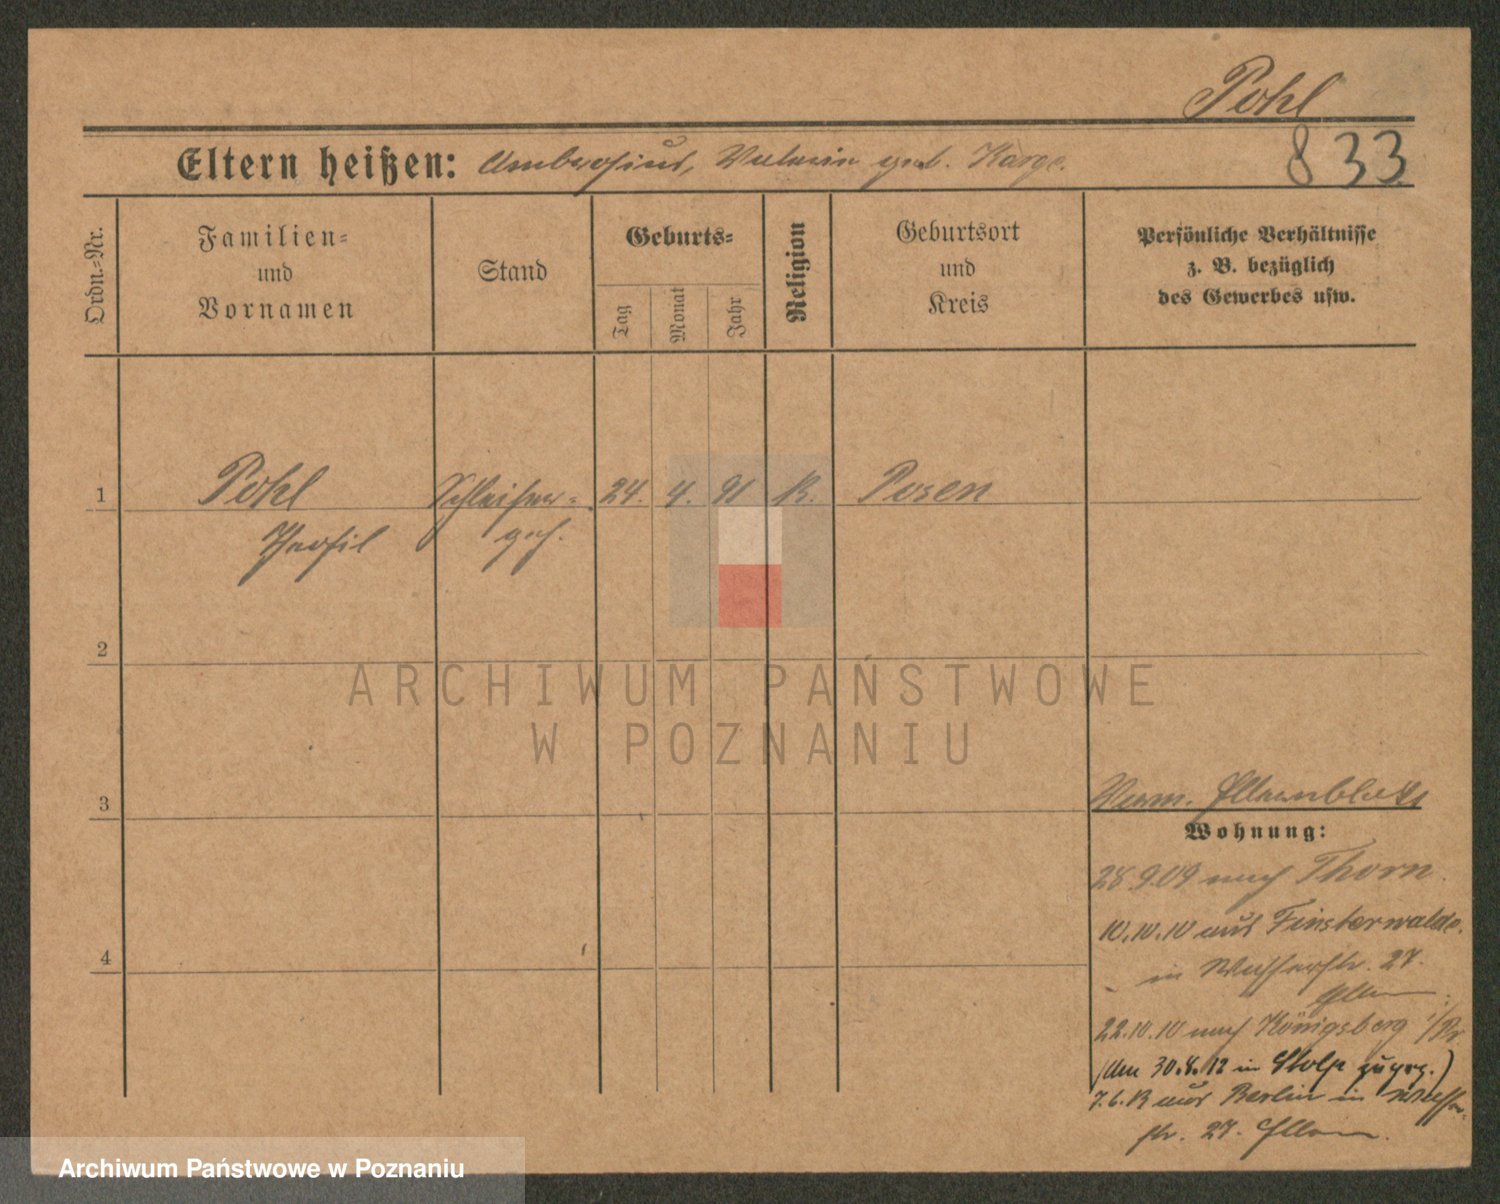 Pohl
833
Eltern heißen: Ambrosius, Valerie geb. Karge.
Ordn.=Nr.
Familien=
und
Vornamen
Stand
Geburts=
Tag
Monat
Jahr
Religion
Geburtsort
und
Kreis
Persönliche Verhältnisse
z. B. bezüglich
des Gewerbes usw.
1 Pohl Schleifer= 24. 4. 91 K. Posen
geh.
2
ARCHIWUM PAŃSTWOWE
W POZNANIU
3
Wohnung:
28.9.09 nach Thorn.
10.10.10 aus Finsterwalde.
in Wasserstr. 27.
4
22.10.10 nach Königsberg i/Pr
(Am 30.8.12 in Stolp zugez.)
7.6.13 aus Berlin in Wasser-
str. 27.
Archiwum Państwowe w Poznaniu